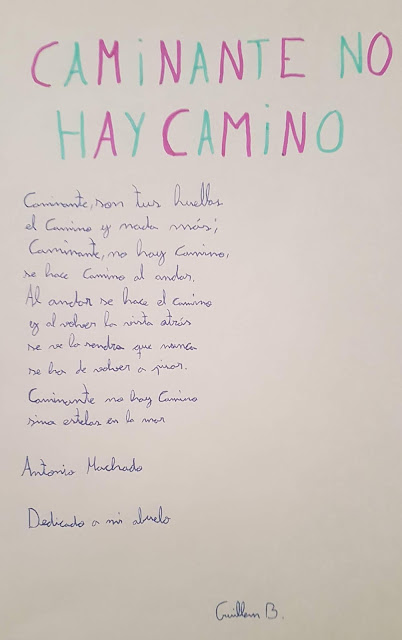 CAMiNANTE NO
HAY CAMiNO
Caminante, son tus huellas
el Camino y nada más;
Caminante, no hay Camino,
se hace Camino al andar.
Al andar se hace el camino
y al volver la vista atrás
se ve la sendra que nunca
se ha de volver a pisar.
Caminante no hay Camino
sina estelas en la mar
Antonio Machado
Dedicado a mi abuelo
Guillem B.